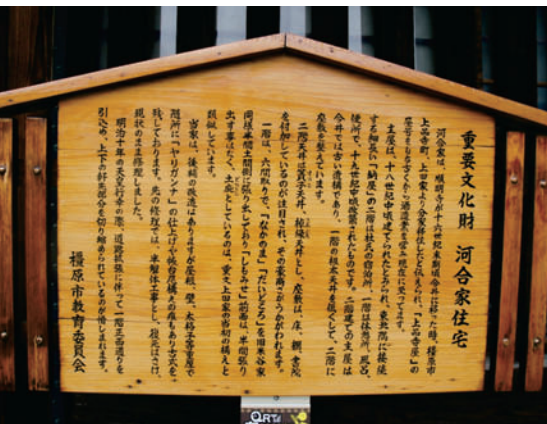 重要文化財 河合家住宅
河合家は、順明寺が十六世紀末期頃今井に移った時、橿原市
上品寺町、上田家より分家移住したと伝えられ、「上品寺屋」の
屋号をもち古くから酒造業を営み現在に至ってます。
主屋は、十八世紀中頃建てられたとみられ、東北隅に接続
する細長い「納屋」の二階は杜氏の宿泊所、一階は休憩所、風呂、
便所で、十九世紀中頃後設されたものです。二階建ての主屋は
今井では古い遺構であり、一階の根太天井を低くして、二階に
座敷を整えています。
二階天井は簀子天井、棹縁天井とし、座敷は、床、棚、書院
を付加しているのが注目され、その豪商さがうかがわれます。
一階は、六間取りで、「なかのま」「だいどころ」を旧米谷家
同様半間土間側に張り出しており「しもみせ」前面は、半間張り
出す事はなく、土庇としているのは、重文上田家の古切の構えと
類似しています。
当家は、後補の改造はありますが屋根、壁、太格子等重屋で
随所に「ヤリガンナ」の仕上げや帳台
残しております。先の修理では、半解体工事とし、復元はさけ、
現状のまま修理しました。
明治十年の天皇行幸の際、道路拡張に伴って一階正面通りを
引込め、上下の軒先部分を切り縮められているのが惜しまれます。
橿原市教育委員会
QR